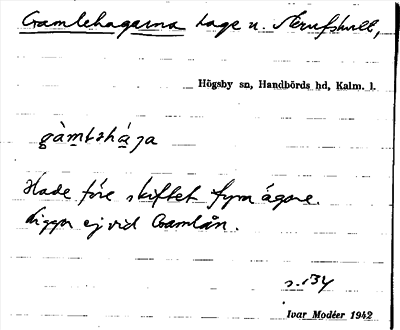 Gamlehagarna hage u. Åkrufshult,
Högsby sn, Handbörds hd, Kalm. l.
gàmləhága
Hade före skiftet fyra ägare.
Ligger ej vid Gamlån.
s. 134
Ivar Modéer 1942